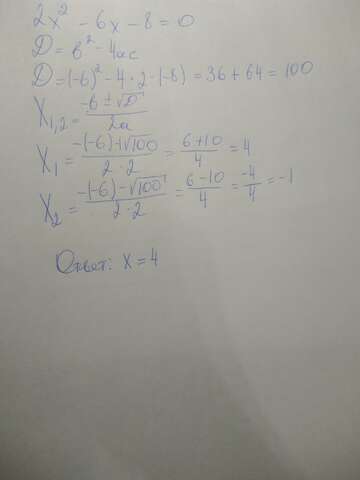 2x² - 6x - 8 = 0
D = b² - 4ac
D = (-6)² - 4 · 2 · (-8) = 36 + 64 = 100
x₁,₂ = (-b ± √D) / 2a
x₁ = (-(-6) + √100) / (2 · 2) = (6 + 10) / 4 = 4
x₂ = (-(-6) - √100) / (2 · 2) = (6 - 10) / 4 = -4 / 4 = -1
Ответ: x = 4